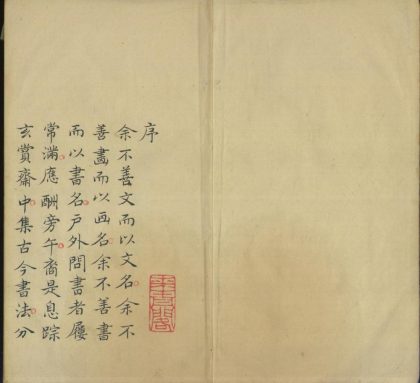 序
余不善文而以文名余不
善畫而以画名余不善書
而以書名戶外問書者屨
常滿應酬旁午裔是息踪
玄賞齋中集古今書法分